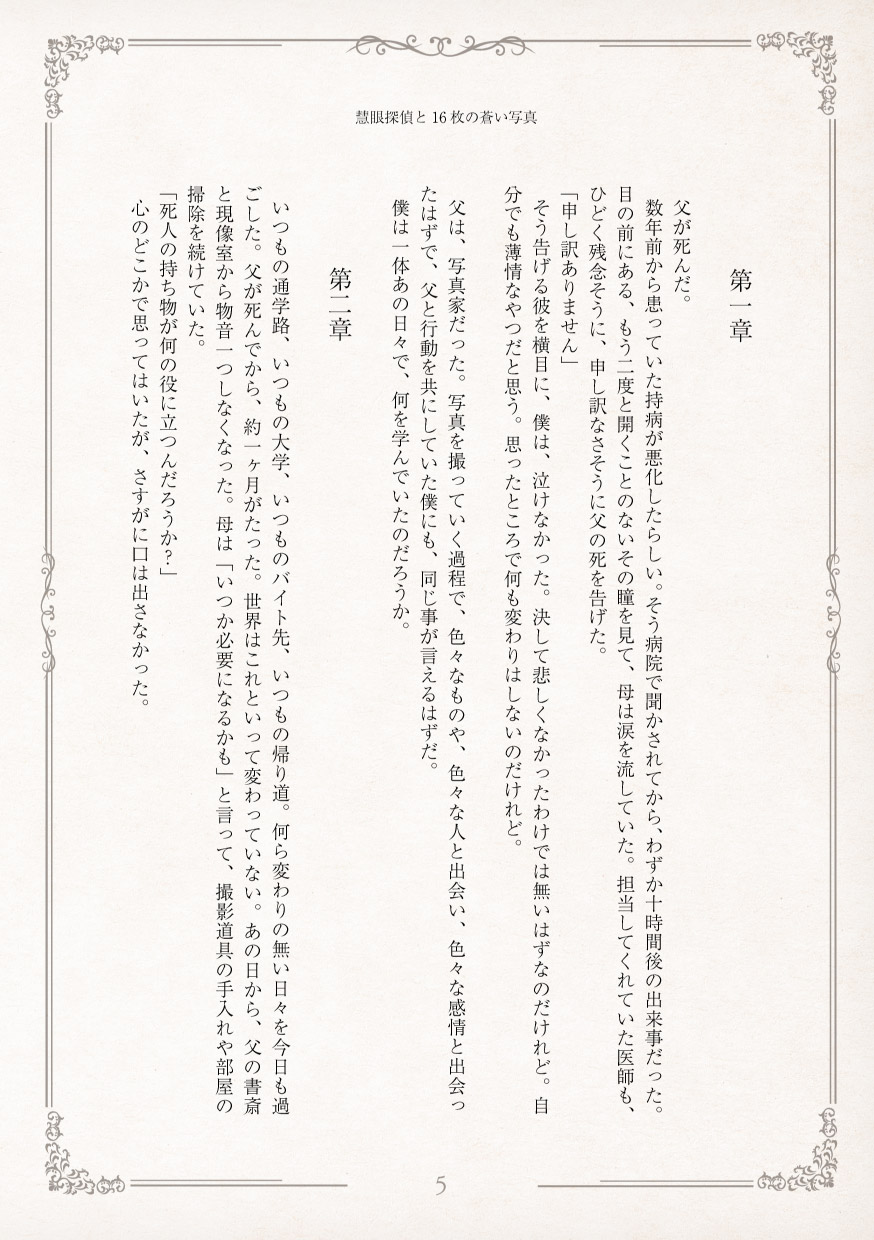 慧眼探偵と16枚の蒼い写真
第一章
父が死んだ。
数年前から患っていた持病が悪化したらしい。そう病院で聞かされてから、わずか十時間後の出来事だった。
目の前にある、もう二度と開くことのないその瞳を見て、母は涙を流していた。担当してくれていた医師も、
ひどく残念そうに、申し訳なさそうに父の死を告げた。
「申し訳ありません」
そう告げる彼を横目に、僕は、泣けなかった。決して悲しくなかったわけでは無いはずなのだけれど。自
分でも薄情なやつだと思う。思ったところで何も変わりはしないのだけれど。
父は、写真家だった。写真を撮っていく過程で、色々なものや、色々な人と出会い、色々な感情と出会っ
たはずで、父と行動を共にしていた僕にも、同じ事が言えるはずだ。
僕は一体あの日々で、何を学んでいたのだろうか。
第二章
いつもの通学路、いつもの大学、いつものバイト先、いつもの帰り道。何ら変わりの無い日々を今日も過
ごした。父が死んでから、約一ヶ月がたった。世界はこれといって変わっていない。あの日から、父の書斎
と現像室から物音一つしなくなった。母は「いつか必要になるかも」と言って、撮影道具の手入れや部屋の
掃除を続けていた。
「死人の持ち物が何の役に立つんだろうか？」
心のどこかで思ってはいたが、さすがに口は出さなかった。
5